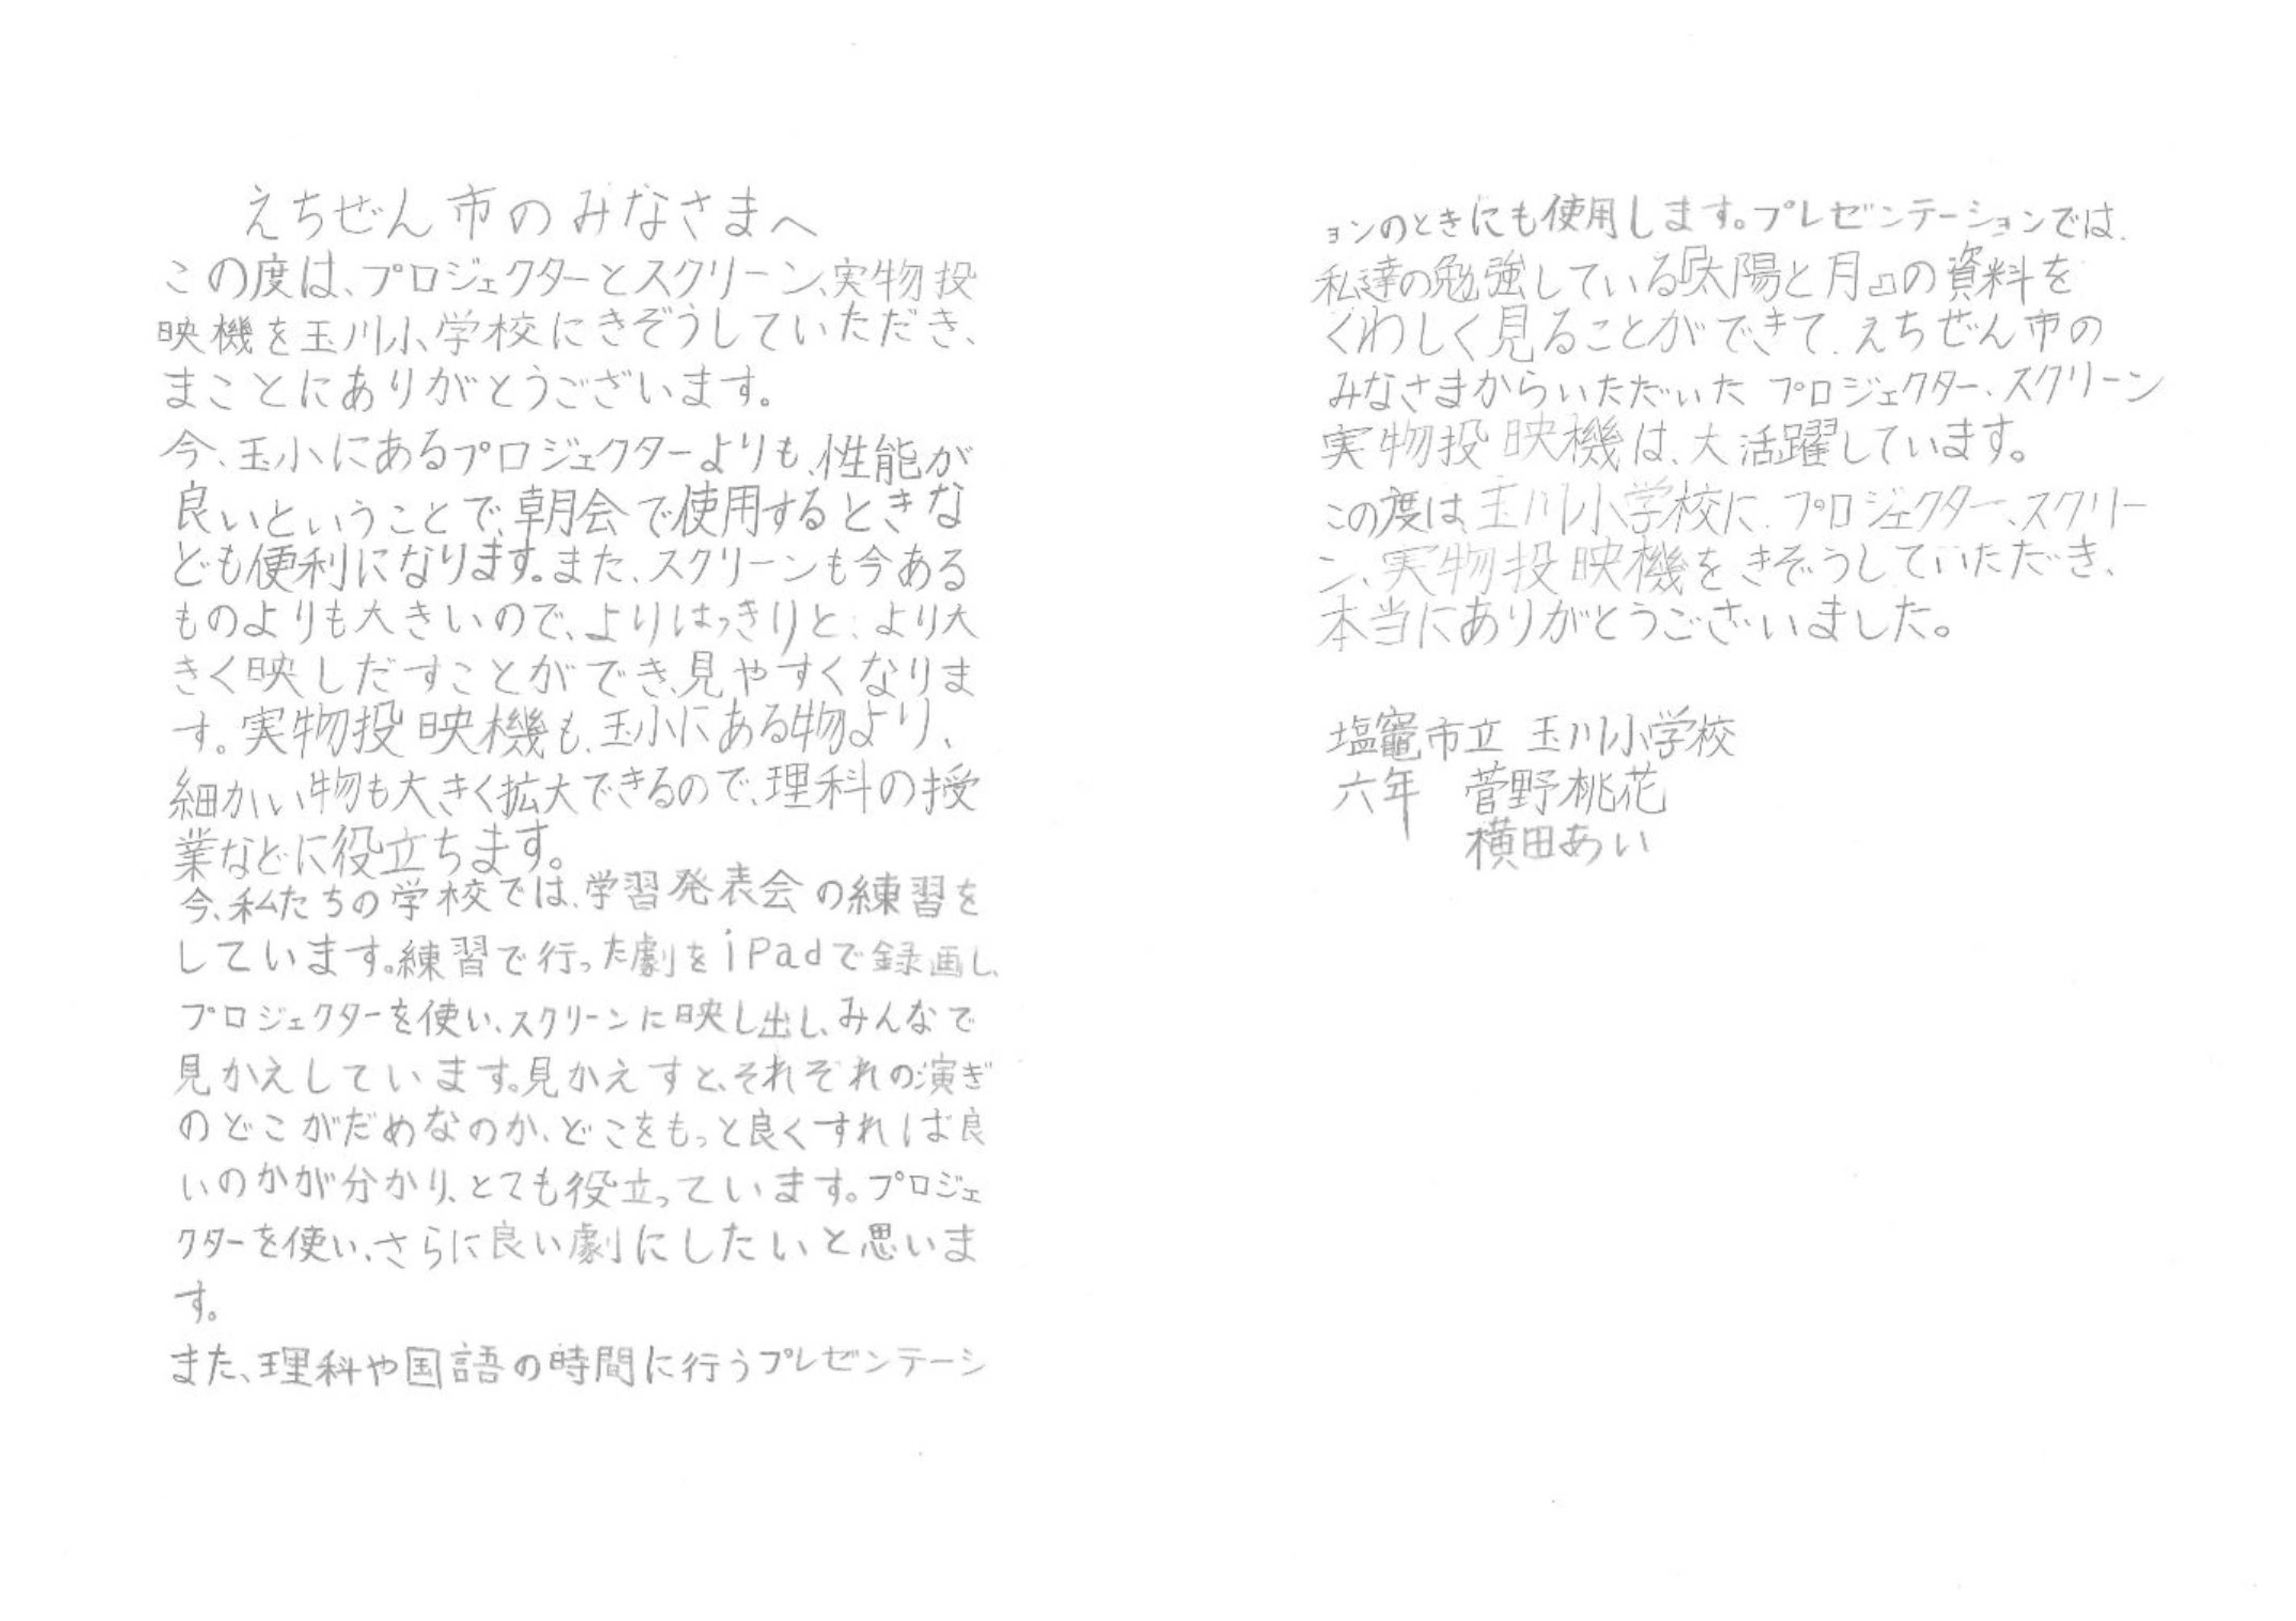 えちぜん市のみなさまへ
この度は、プロジェクターとスクリーン、実物投
映機を玉川小学校にきぞうしていただき、
まことにありがとうございます。
今、玉小にあるプロジェクターよりも、性能が
良いということで、朝会で使用するときな
ども便利になります。また、スクリーンも今ある
ものよりも大きいので、よりはっきりと、より大
きく映しだすことができ、見やすくなりま
す。実物投映機も、玉小にある物より、
細かい物も大きく拡大できるので、理科の授
業などに役立ちます。
今、私たちの学校では、学習発表会の練習を
しています。練習で行った劇をiPadで録画し、
プロジェクターを使い、スクリーンに映し出し、みんなで
見かえしています。見かえすと、それぞれの演ぎ
のどこがだめなのか、どこをもっと良くすれば良
いのかが分かり、とても役立っています。プロジェ
クターを使い、さらに良い劇にしたいと思いま
す。
また、理科や国語の時間に行うプレゼンテーシ
ョンのときにも使用します。プレゼンテーションでは、
私達の勉強している『太陽と月』の資料を
くわしく見ることができて、えちぜん市の
みなさまからいただいた プロジェクター、スクリーン
実物投映機は、大活躍しています。
この度は、玉川小学校に、プロジェクター、スクリー
ン、実物投映機をきぞうしていただき、
本当にありがとうございました。
塩竈市立 玉川小学校
六年 菅野桃花
横田あい